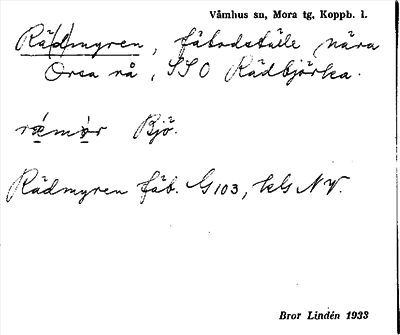 Våmhus sn, Mora tg, Koppb. l.
Rä(d)myren, fäbodställe nära
Orsa rå, SSO Rädbjörka.
rǽmỳr Bjö.
Rädmyren fäb. G103, kls NV.
Bror Lindén 1933